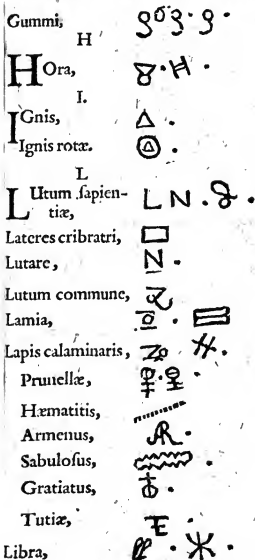 Gummi,
H
Hora,
I.
Ignis,
Ignis rotæ.
L
Lutum ſapien-
tiæ, L N.
Lateres cribratri,
Lutare, N
Lutum commune,
Lamia,
Lapis calaminaris,
Prunellæ,
Hæmatitis,
Armenus,
Sabuloſus,
Gratiatus,
Tutiæ,
Libra,